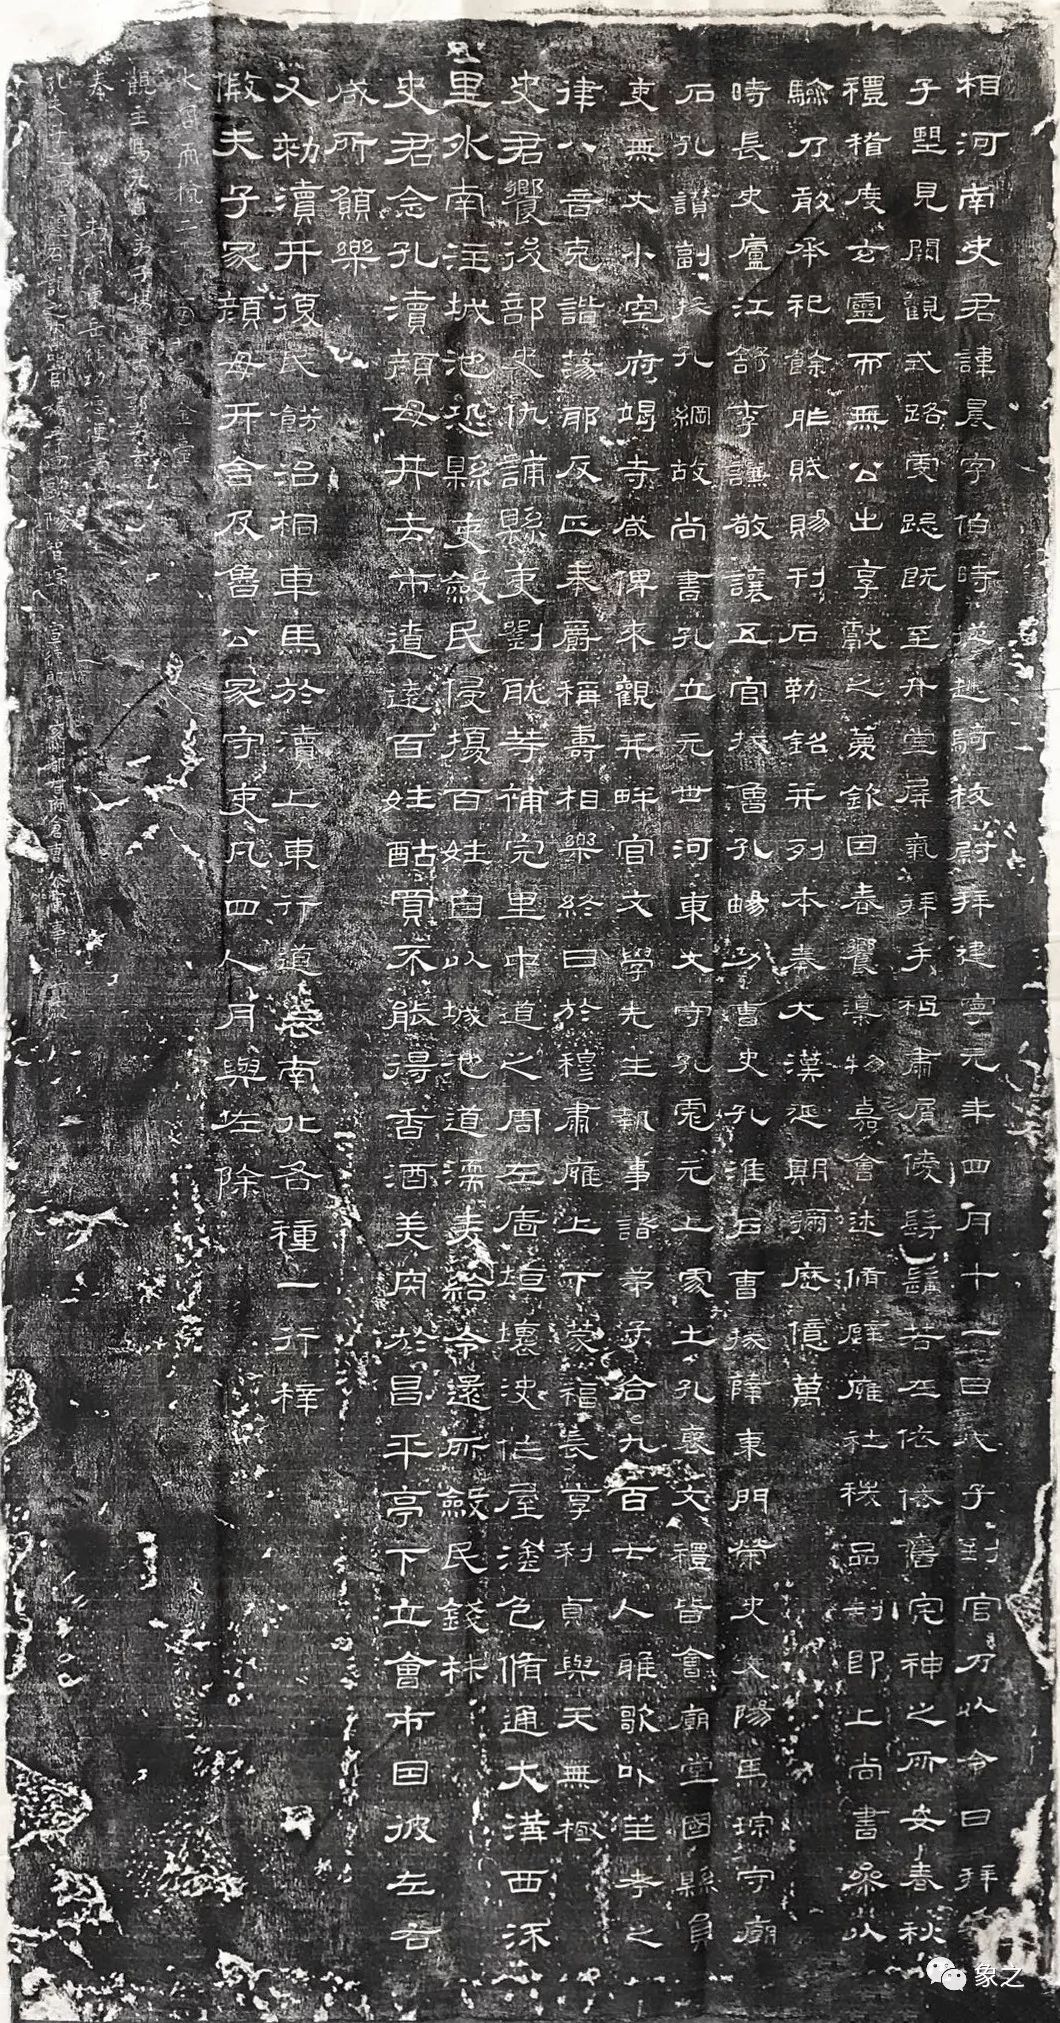 相河南史君諱晨字伯時從越騎校尉拜建寧元年四月十一日戊子到官乃以令日拜
子望見闕觀式路虔跽既至升堂屏氣拜手祗肅屑僾髣髴若在依依舊宅神之所安春秋
禮稽度玄靈而無公出享獻之薦欽因春饗導物嘉會述脩辟雍社稷品制即上尚書參以
驗乃敢承祀餘胙賦賜刊石勒銘并列本奏大漢延期彌歷億萬
時長史廬江舒李謙敬讓五官掾魯孔暢功曹史孔淮户曹掾薛東門榮史文陽馬琮守廟
石孔讚副掾孔綱故尚書孔立元世河東大守孔彪元上處土孔褒文禮皆會廟堂國縣員
吏無大小空府竭寺咸俾來觀并畔官文學先生執事諸弟子合九百七人雅歌吹笙考之
律八音克諧蕩邪反正奉爵稱壽相樂終日於穆肅雍上下蒙福長享利貞與天無極
史君饗後部史仇誧縣吏劉耽等補完里中道之周左廧垣壞決作屋塗色脩通大溝西流
里外南注城池恐縣吏斂民侵擾百姓自以城池道濡麦給令還所斂民錢材
史君念孔瀆顏母井去市遼遠百姓酤買不能得香酒美肉於昌平亭下立會市因彼左右
咸所願樂
又勑瀆井復民餝治桐車馬於瀆上東行道表南北各種一行梓
假夫子冢顏母井舍及魯公冢守吏凡四人月與佐除
大周 金臺
觀主馬元貞弟子楊
奉 勑
孔夫子之 歐陽智琮
象之